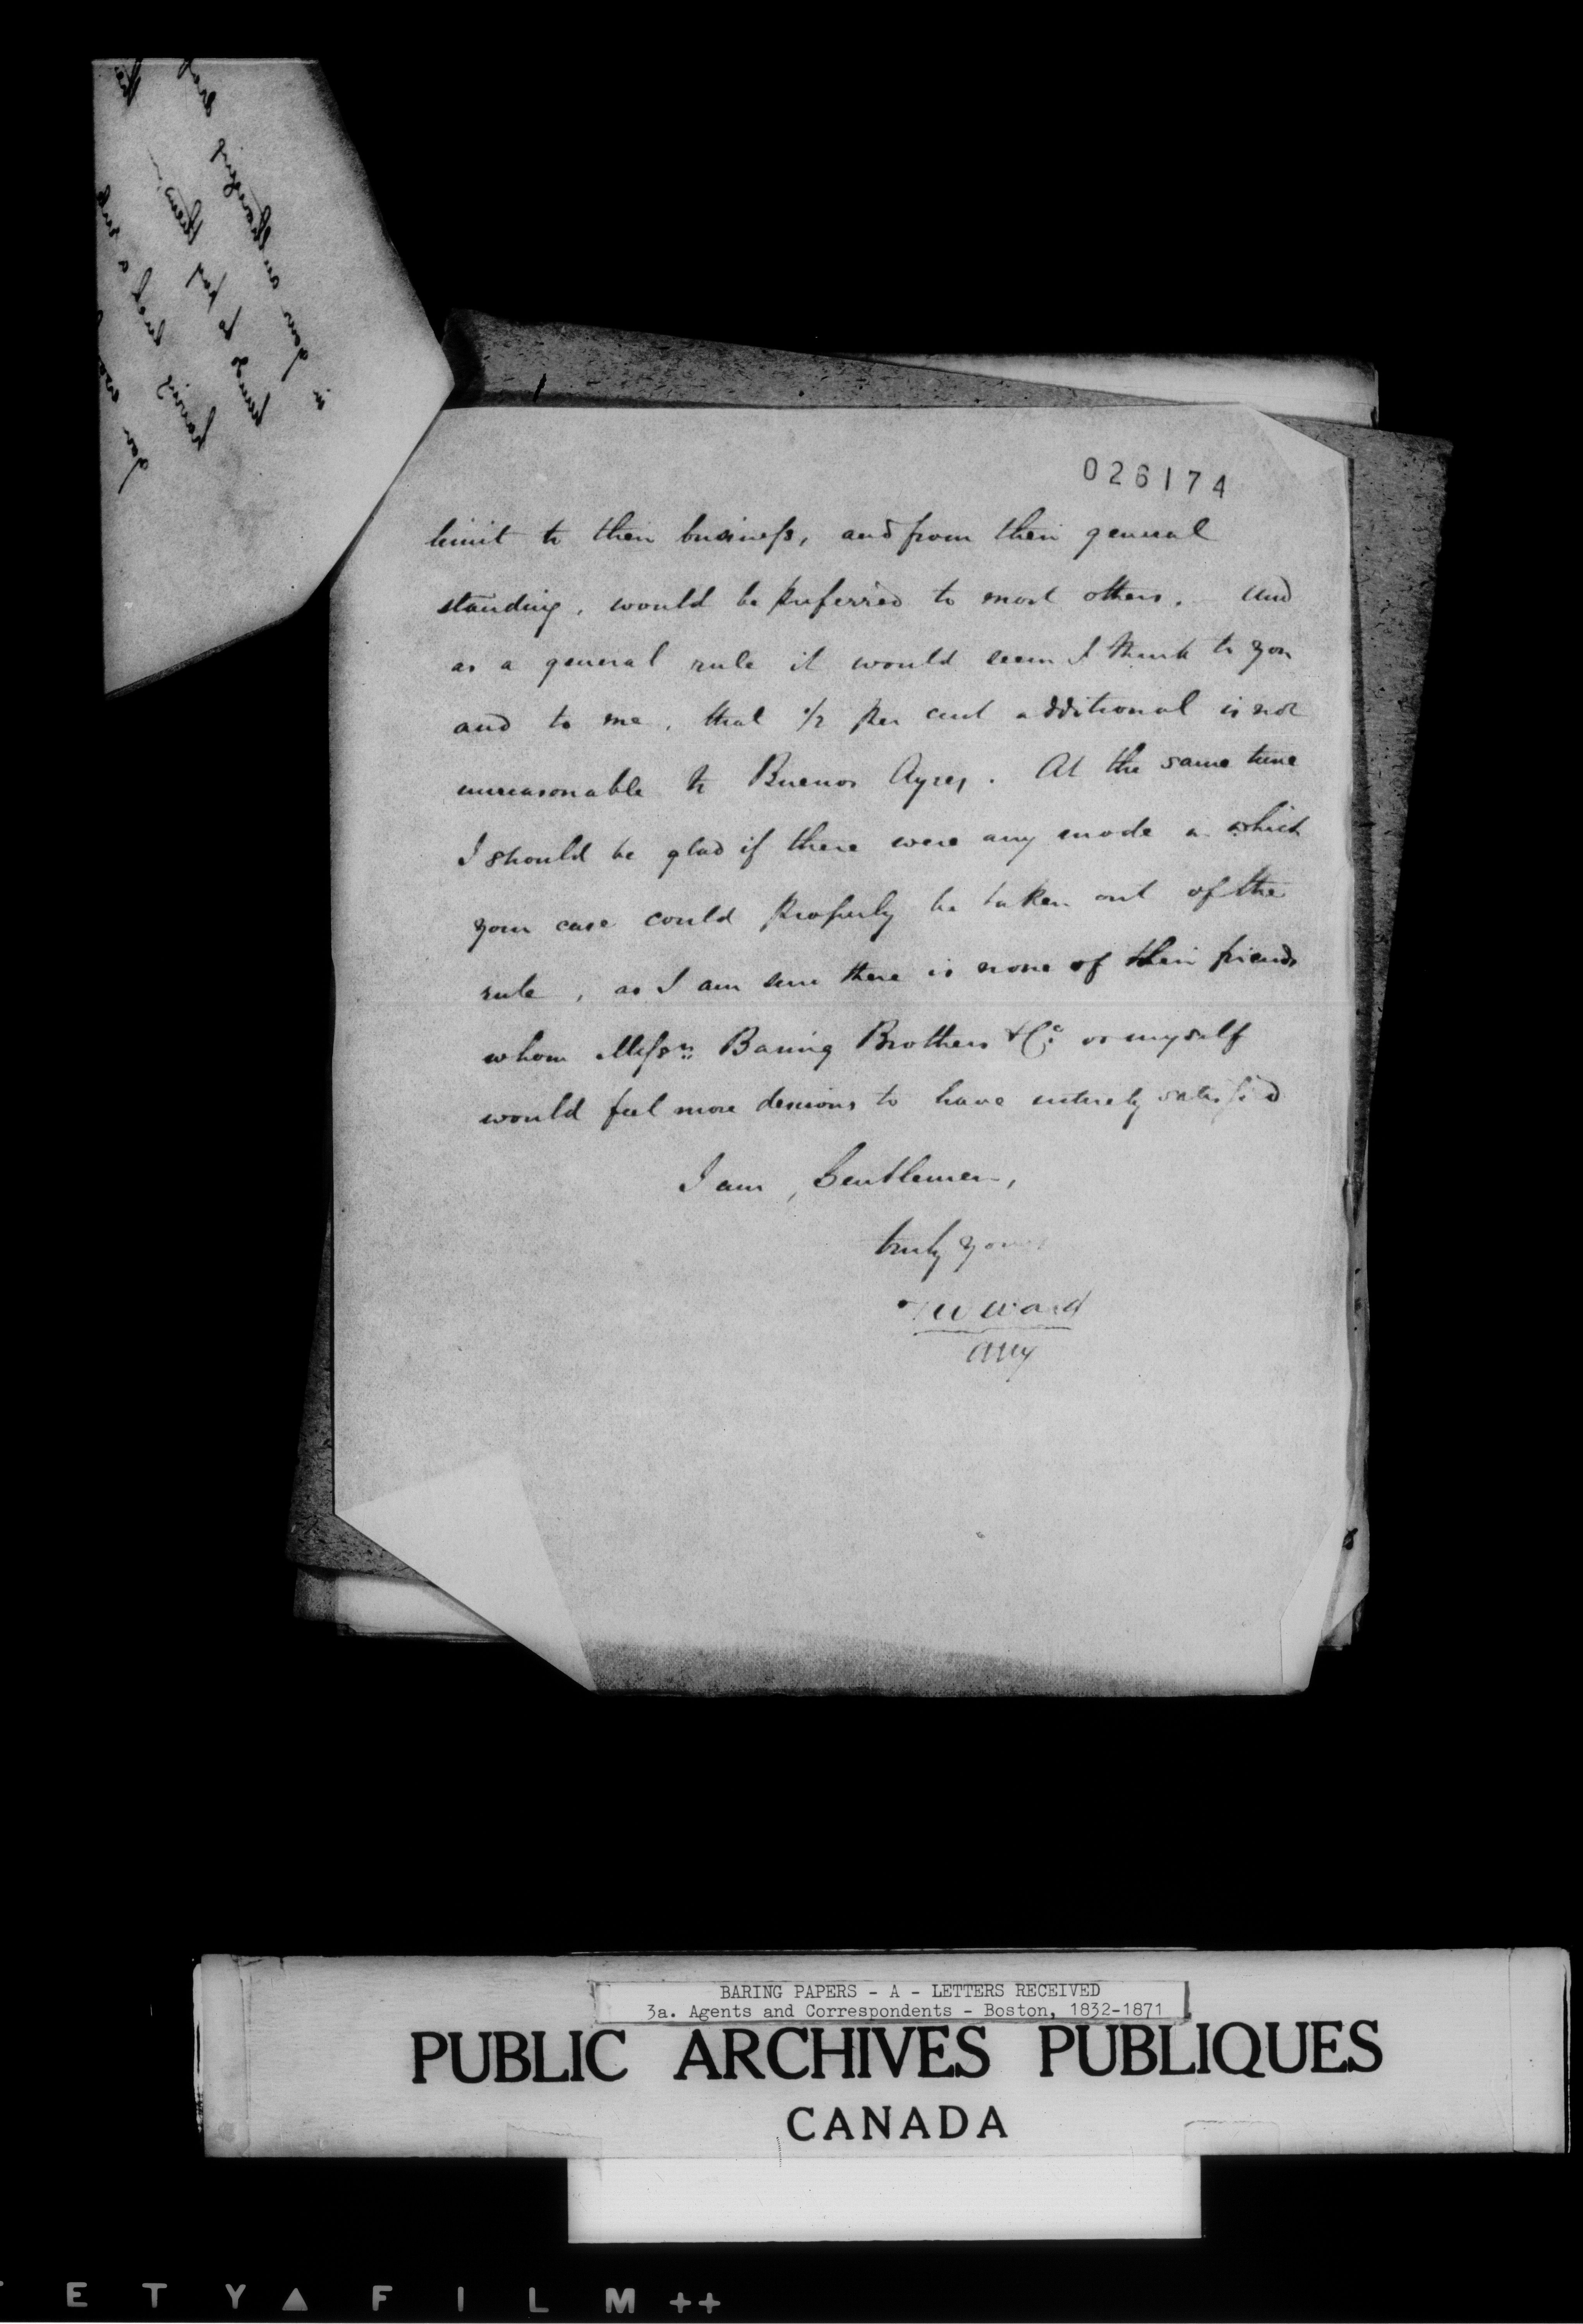 026174
limit to their business, and from their general
standing, would be preferred to most others. — And
as a general rule it would seem I think to you
and to me, that ½ per cent additional is not
unreasonable to Buenos Ayres. At the same time
I should be glad if there were any mode in which
your case could properly be taken out of the
rule, as I am sure there is none of their friends
whom Messrs Baring Brothers & Co or myself
would feel more desirous to have entirely satisfied
I am, Gentlemen,
truly yours
T W Ward
Atty
BARING PAPERS - A - LETTERS RECEIVED
3a. Agents and Correspondents - Boston, 1832-1871
PUBLIC ARCHIVES PUBLIQUES
CANADA
E T Y ▲ F I L M ++